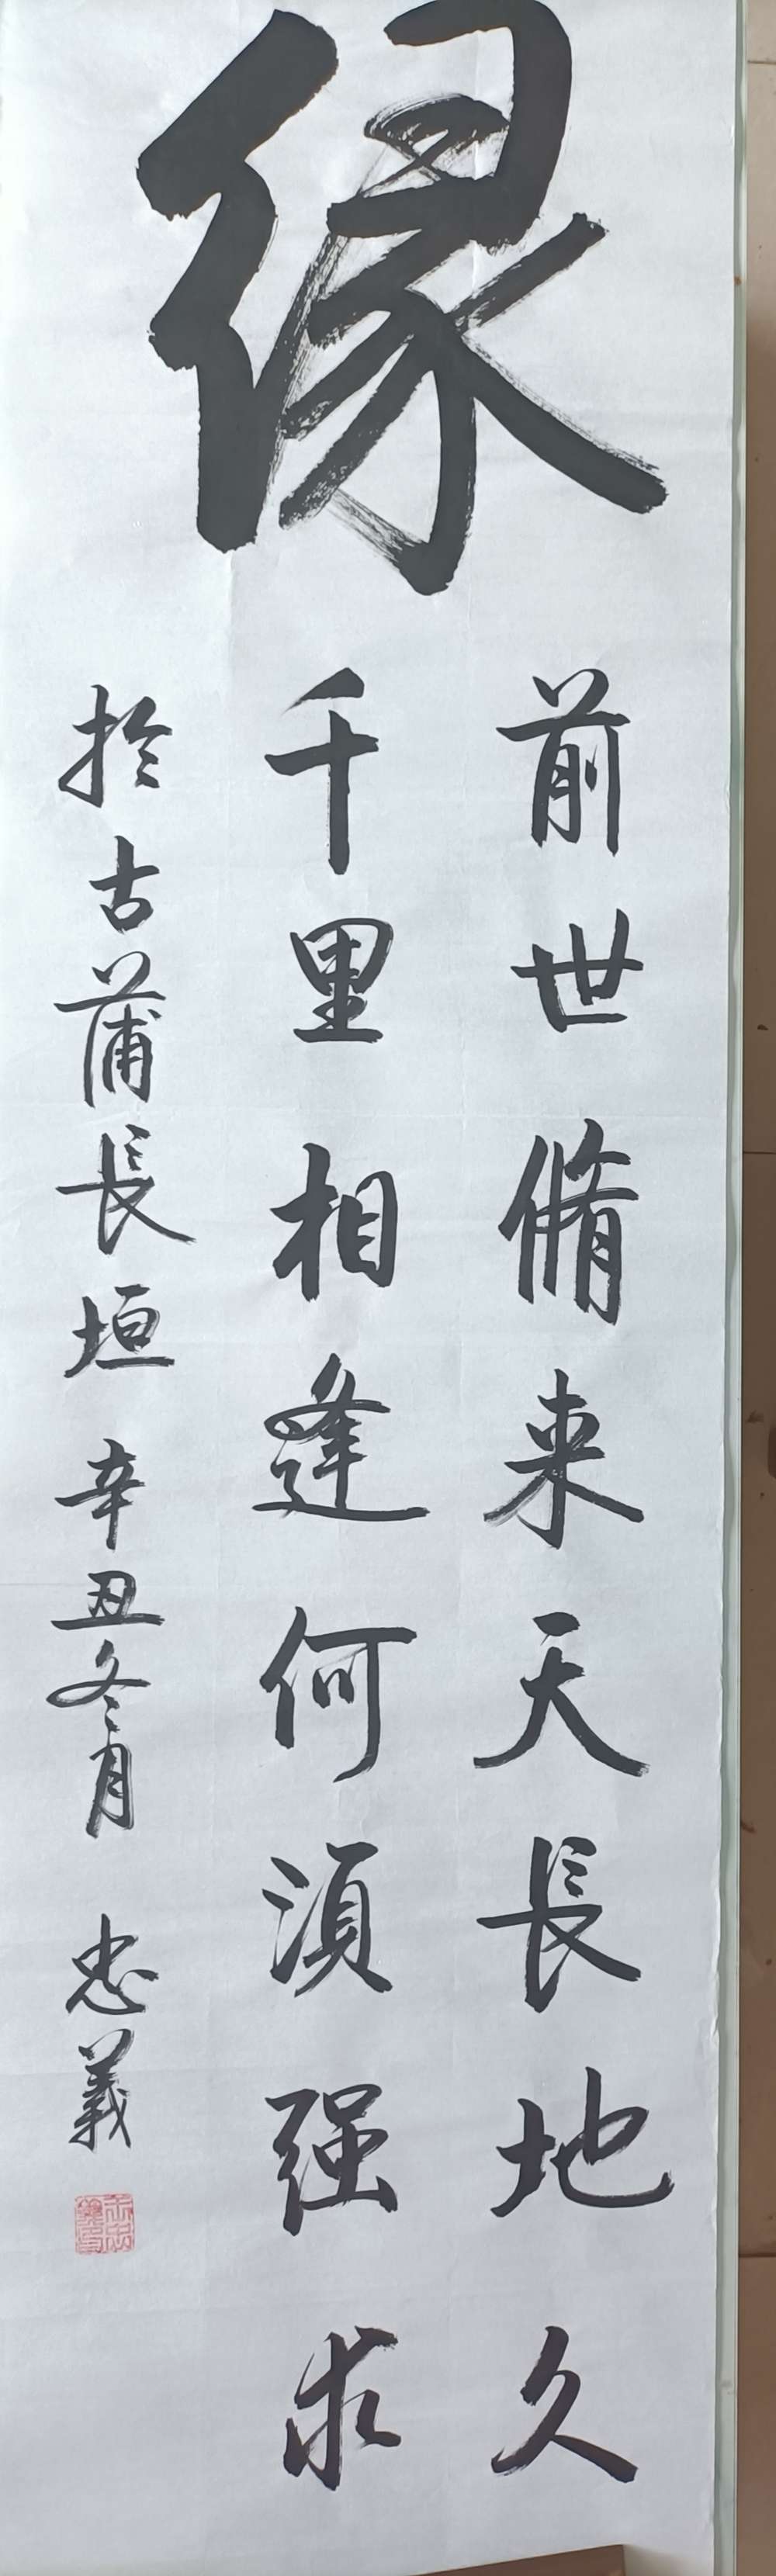 缘
前世脩来天長地久
千里相逢何須强求
於古蒲長垣 辛丑冬月 忠義